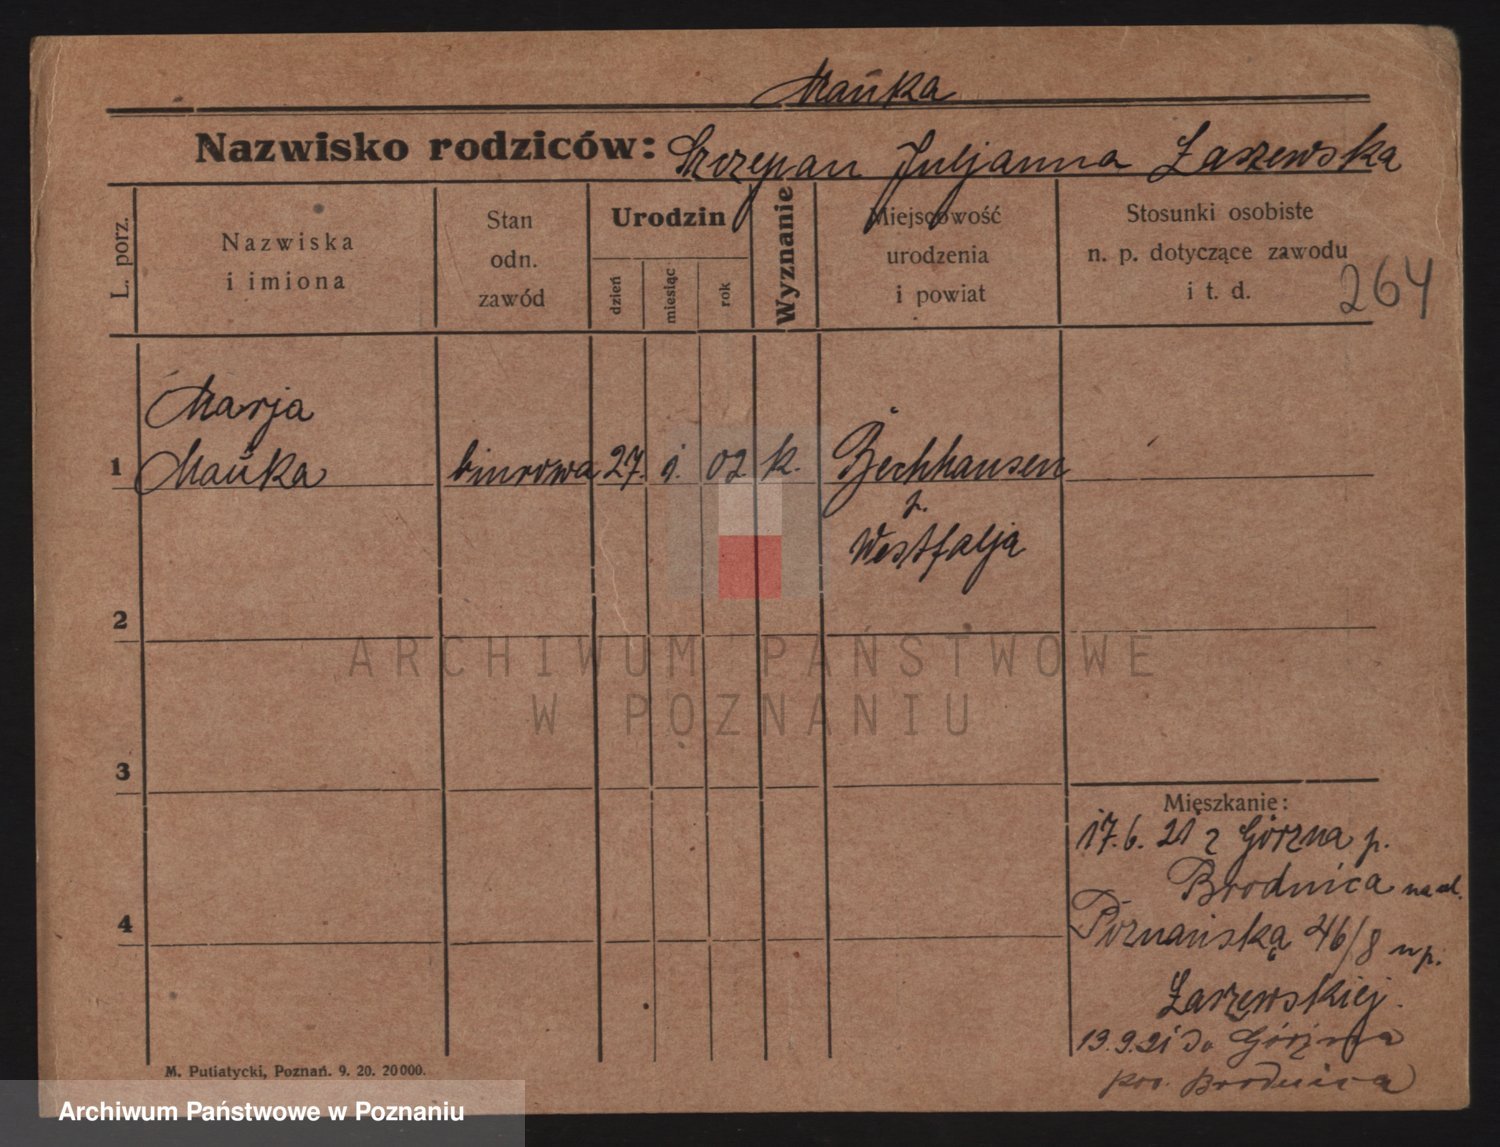 Mańka
Nazwisko rodziców: Szczepan Juljanna Łaszewska
L. porz.
Nazwiska
i imiona
Stan
odn.
zawód
Urodzin
dzień
miesiąc
rok
Wyznanie
Miejscowość
urodzenia
i powiat
Stosunki osobiste
n. p. dotyczące zawodu
i t. d.
264
Marja
1 Mańka biurowa 27. 9. 02 k.
z.
Westfalja
2
ARCHIWUM PAŃSTWOWE
W POZNANIU
3
Mięszkanie:
17.6.21 z Górzna p.
Brodnica na ul.
4
Poznańską 46/8 u p.
Łaszewskiej.
13.9.21 do Górzna
pow. Brodnica
M. Putiatycki, Poznań. 9. 20. 20000.
Archiwum Państwowe w Poznaniu